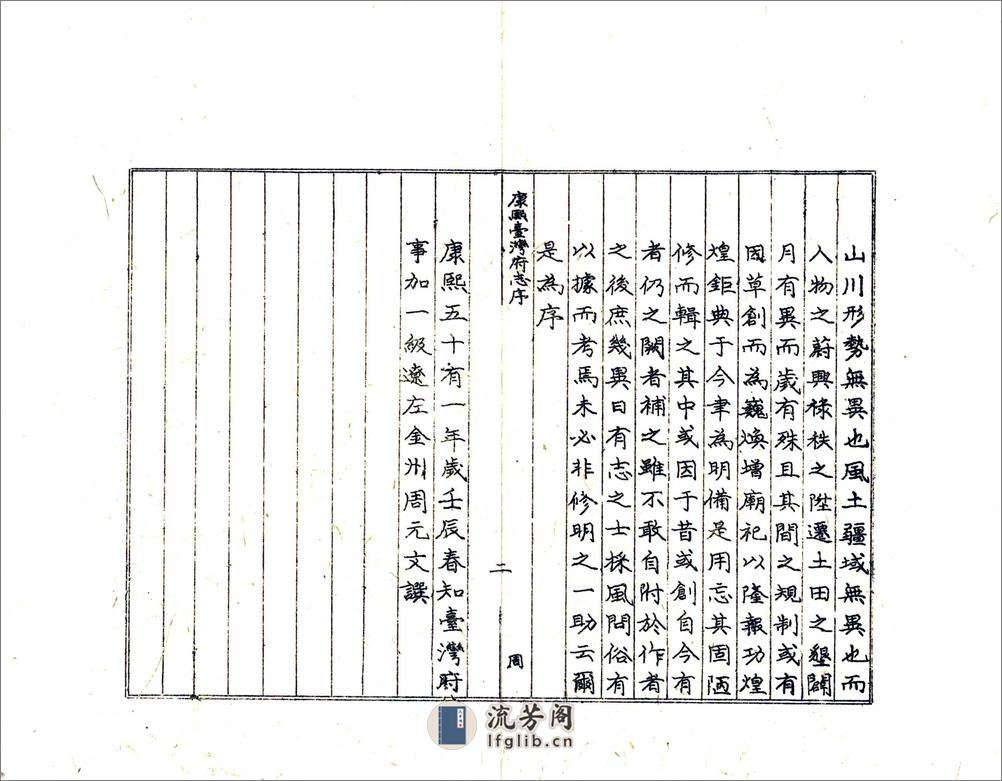 山川形勢無異也風土疆域無異也而
人物之蔚興祿秩之陞遷土田之墾闢
月有異而歲有殊且其間之規制或有
因草創而為巍煥增廟祀以隆報功煌
煌鉅典于今聿為明備是用忘其固陋
修而輯之其中或因于昔或創自今有
者仍之闕者補之雖不敢自附於作者
之後庶幾異日有志之士採風問俗有
以據而考焉未必非修明之一助云爾
是為序
康熙臺灣府志序
二
周
康熙五十有一年歲壬辰春知臺灣府
事加一級遼左金州周元文譔
流芳阁
lfglib.cn